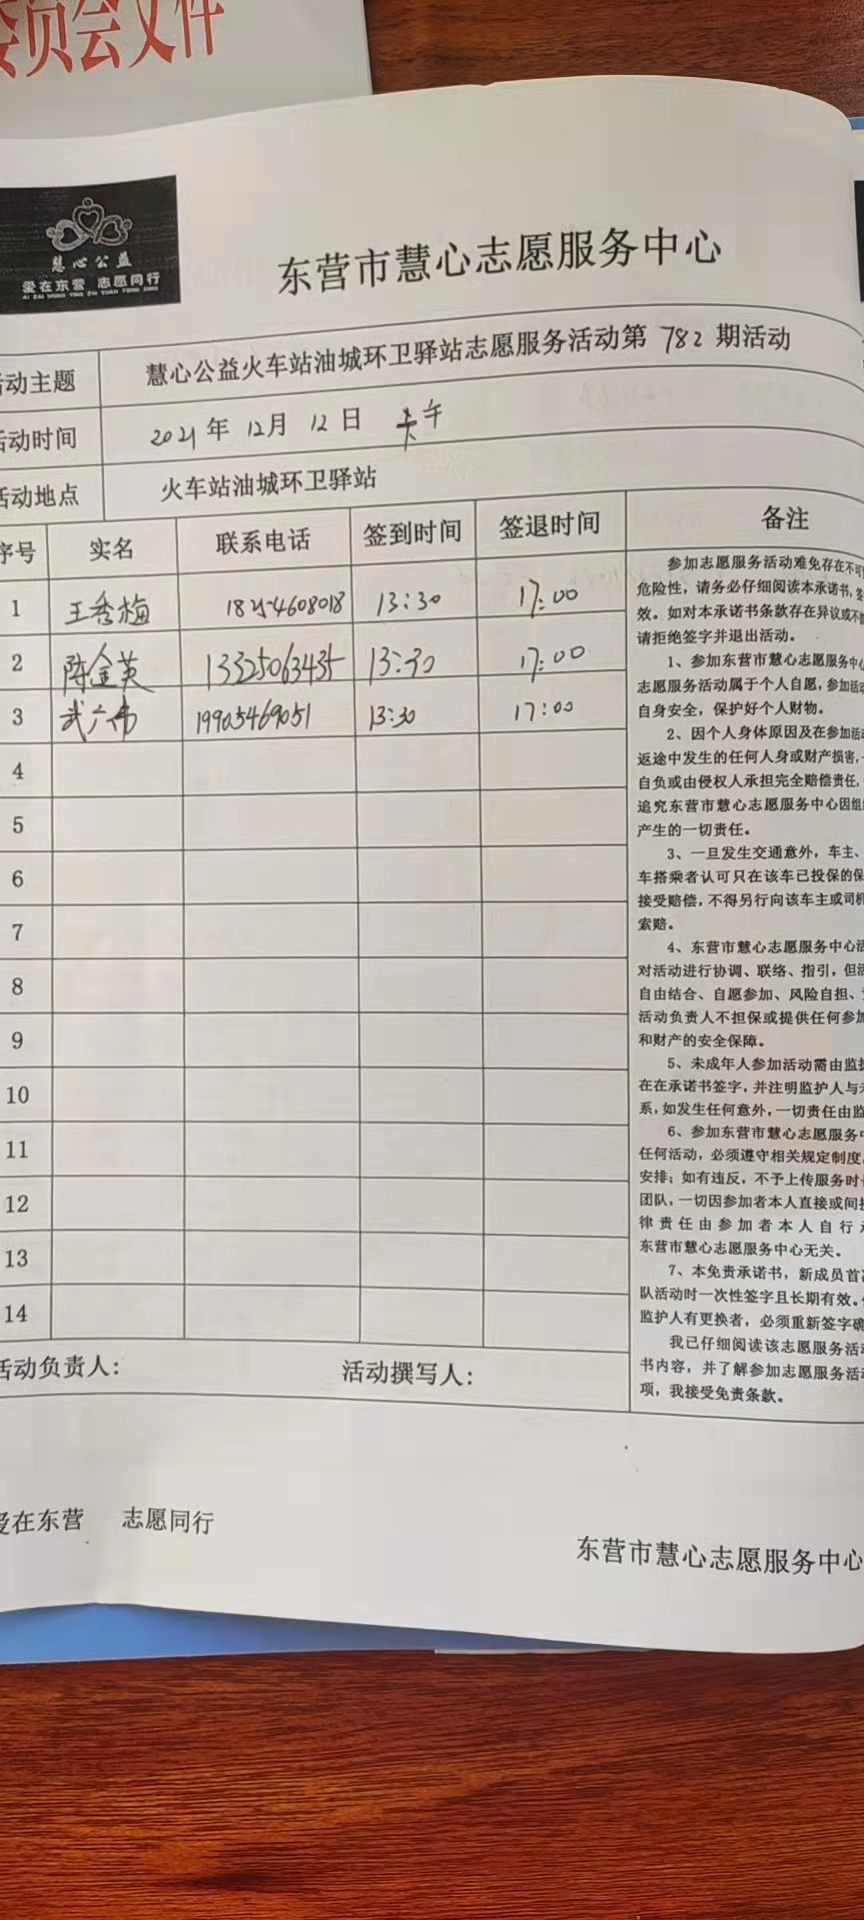 委员会文件
慧心公益
爱在东营 志愿同行
AI ZAI DONG YING ZHI YUAN TONG XING
东营市慧心志愿服务中心
活动主题 慧心公益火车站油城环卫驿站志愿服务活动第 782 期活动
活动时间 2021 年 12月 12 日 下午
活动地点 火车站油城环卫驿站
序号 实名 联系电话 签到时间 签退时间 备注
1 王秀梅 13:30 17:00
2 陈金英 13325063435 13:30 17:00
3 武广伟 19905469051 13:30 17:00
4
5
6
7
8
9
10
11
12
13
14
参加志愿服务活动难免存在不可
危险性，请务必仔细阅读本承诺书，签
效。如对本承诺书条款存在异议或不
请拒绝签字并退出活动。
1、参加东营市慧心志愿服务中心
志愿服务活动属于个人自愿，参加活动
自身安全，保护好个人财物。
2、因个人身体原因及在参加活动
返途中发生的任何人身或财产损害，
自负或由侵权人承担完全赔偿责任，
追究东营市慧心志愿服务中心因组
产生的一切责任。
3、一旦发生交通意外，车主、
车搭乘者认可只在该车已投保的保
接受赔偿，不得另行向该车主或司机
索赔。
4、东营市慧心志愿服务中心活
对活动进行协调、联络、指引，但活
自由结合、自愿参加、风险自担、
活动负责人不担保或提供任何参加
和财产的安全保障。
5、未成年人参加活动需由监护
在在承诺书签字，并注明监护人与未
系，如发生任何意外，一切责任由监
6、参加东营市慧心志愿服务中
任何活动，必须遵守相关规定制度，
安排；如有违反，不予上传服务时长
团队，一切因参加者本人直接或间接
律责任由参加者本人自行承
东营市慧心志愿服务中心无关。
7、本免责承诺书，新成员首次
队活动时一次性签字且长期有效。
监护人有更换者，必须重新签字确
我已仔细阅读该志愿服务活动
书内容，并了解参加志愿服务活动
项，我接受免责条款。
活动负责人： 活动撰写人：
爱在东营 志愿同行
东营市慧心志愿服务中心